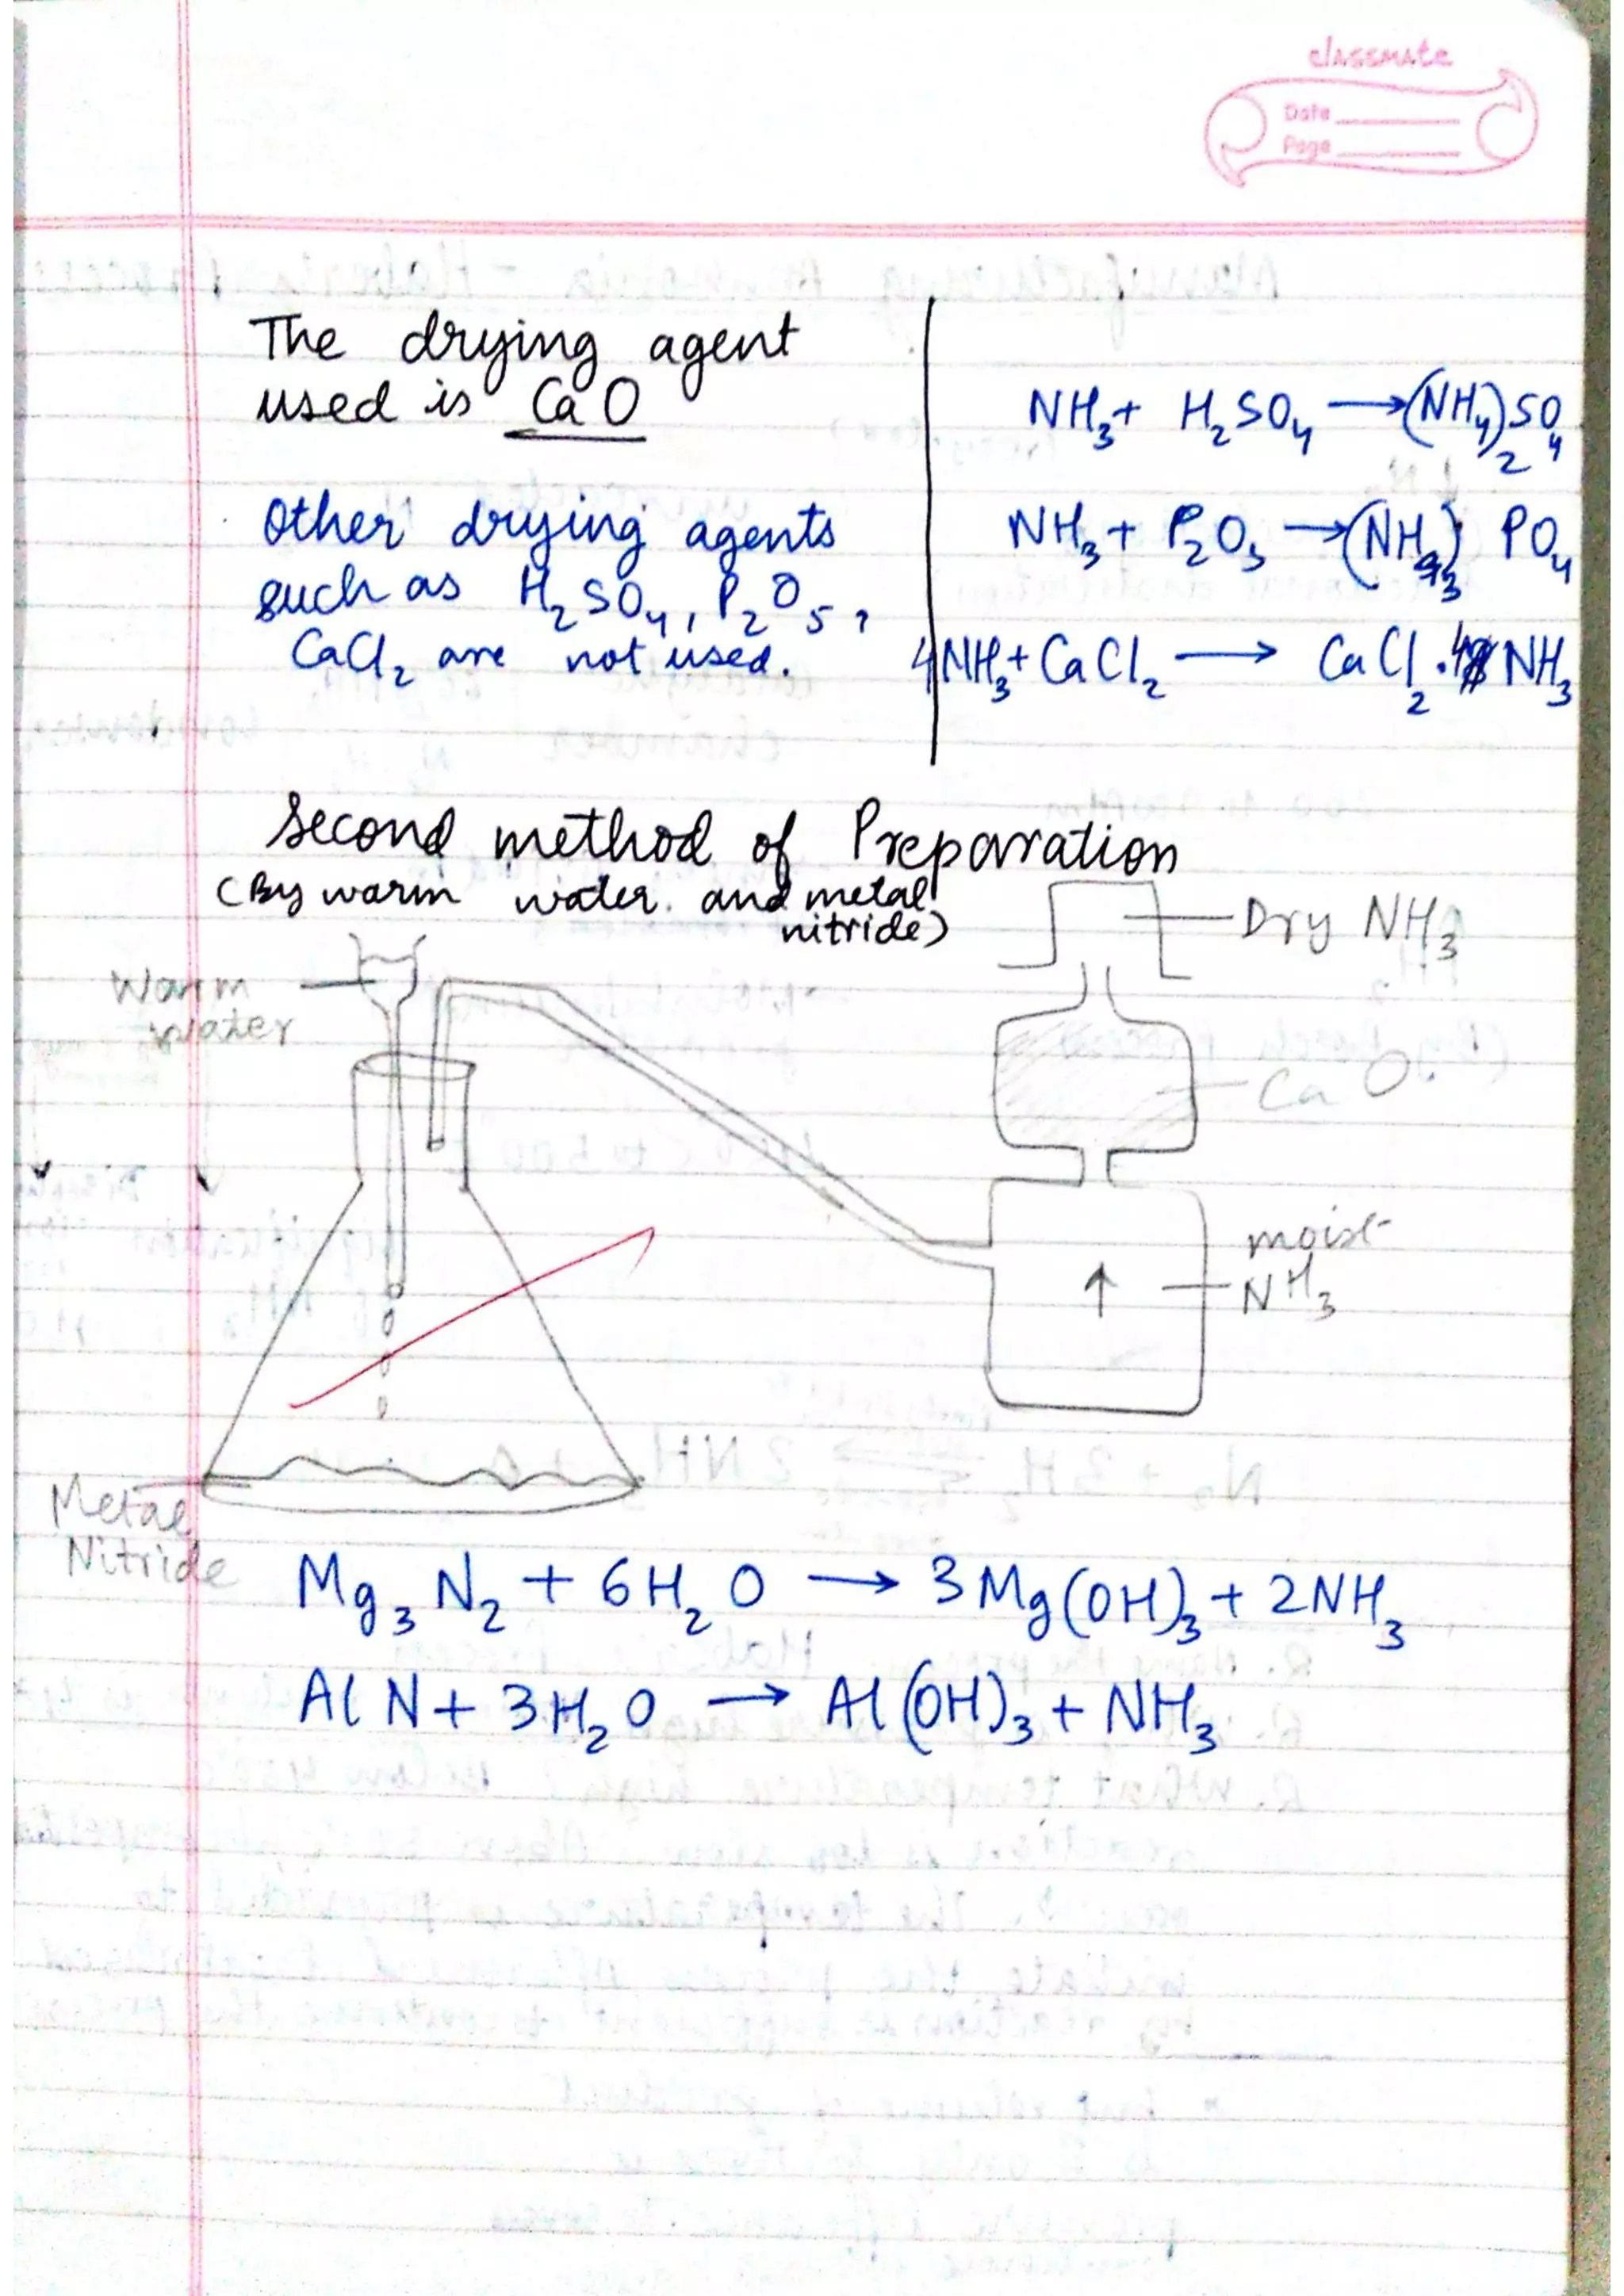 classmate
Date
Page
The drying agent
used is CaO
Other drying agents
such as H₂SO₄, P₂O₅,
CaCl₂ are not used.
NH₃ + H₂SO₄ → (NH₄)₂SO₄
NH₃ + P₂O₅ → (NH₄)₃ PO₄
4NH₃ + CaCl₂ → CaCl₂.4NH₃
Second method of Preparation
(By warm water. and metal
nitride)
Warm
water
Dry NH₃
CaO.
moist
NH₃
Metal
Nitride
Mg₃N₂ + 6H₂O → 3Mg(OH)₃ + 2NH₃
AlN + 3H₂O → Al(OH)₃ + NH₃